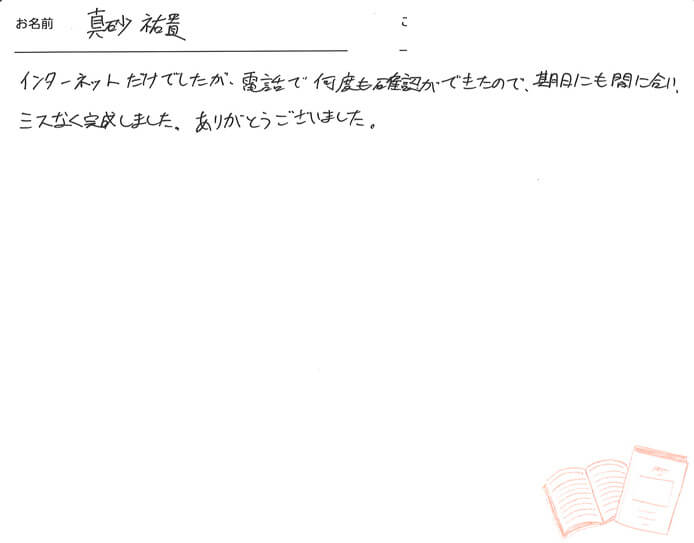 お名前 真砂 祐貴
インターネットだけでしたが、電話で何度も確認ができたので、期日にも間に合い、
ミスなく完成しました。ありがとうございました。